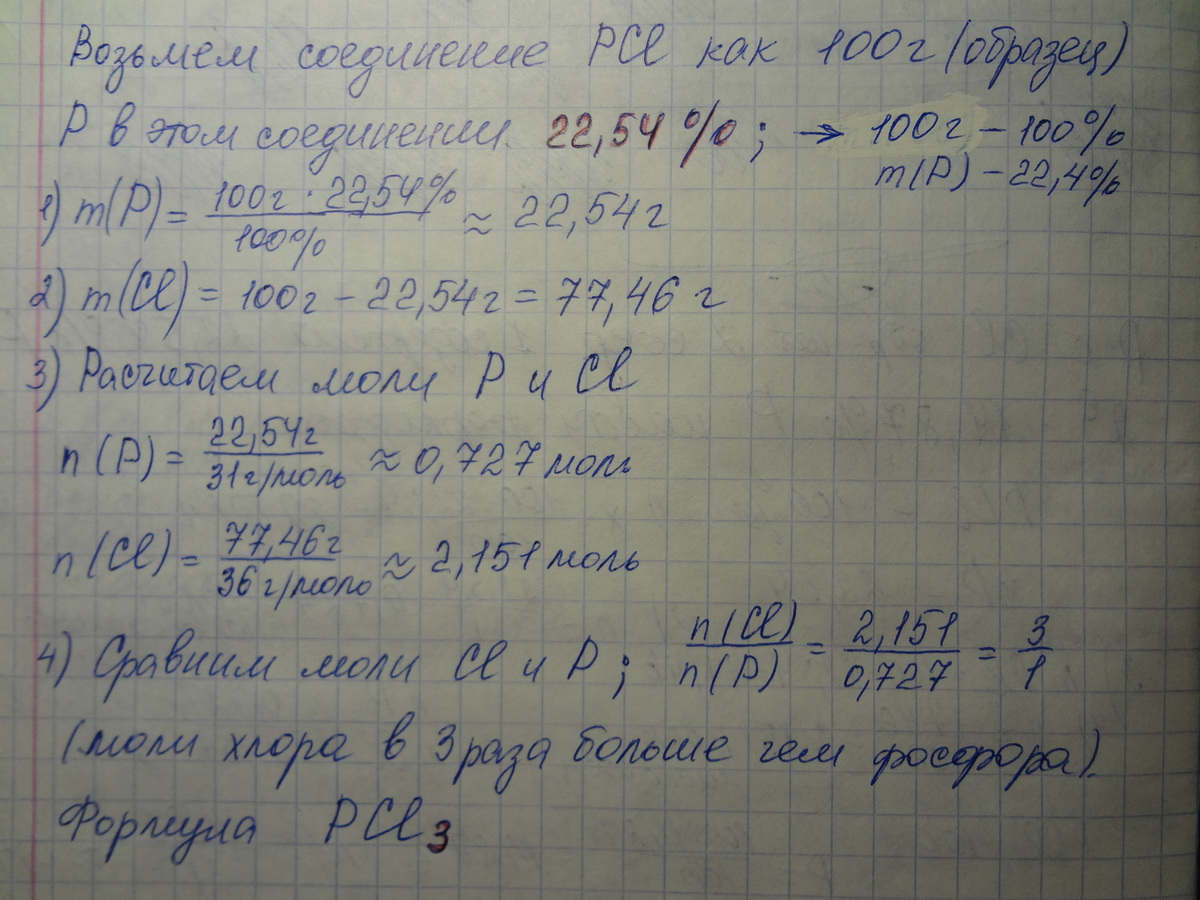 Возьмем соединение PCl как 100г (образец)
P в этом соединении 22,54%; → 100г – 100%
m(P) – 22,4%
1) m(P) = 100г · 22,54% / 100% ≈ 22,54г
2) m(Cl) = 100г – 22,54г = 77,46 г
3) Расчитаем моли P и Cl
n(P) = 22,54г / 31г/моль ≈ 0,727 моль
n(Cl) = 77,46г / 36г/моль ≈ 2,151 моль
4) Сравним моли Cl и P; n(Cl) / n(P) = 2,151 / 0,727 = 3 / 1
(моли хлора в 3 раза больше чем фосфора).
Формула PCl₃